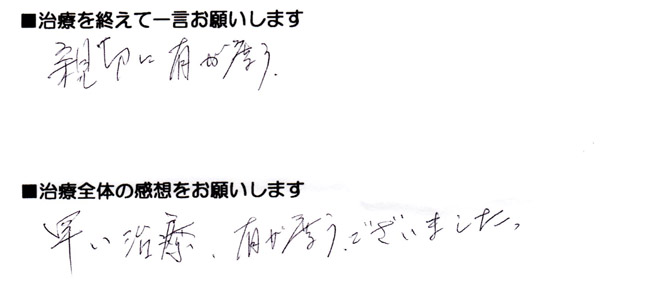 ■治療を終えて一言お願いします
親切に有が度う.
■治療全体の感想をお願いします
早い治療、有が度う、ございました。